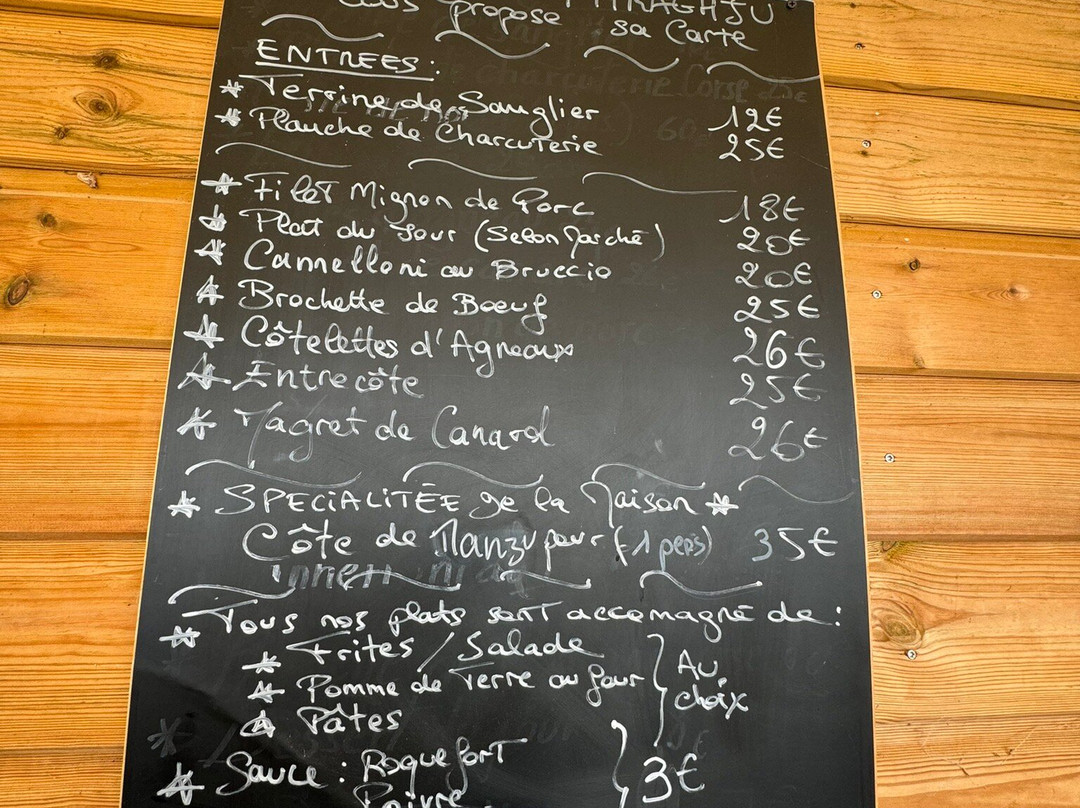 propose
sa Carte
ENTREES :
* Terrine de Sanglier 12€
* Planche de Charcuterie 25€
* Filet Mignon de Porc 18€
* Plat du Jour (Selon Marché) 20€
* Cannelloni au Bruccio 20€
* Brochette de Bœuf 25€
* Côtelettes d'Agneaux 26€
* Entrecôte 25€
* Magret de Canard 26€
* SPECIALITÉE de la Maison *
Côte de Manzu pour (1 pers) 35€
* Tous nos plats sont accomagné de :
* Frites / Salade
* Pomme de Terre au four
* Pâtes
Au
choix
* Sauce : Roquefort
Poivre
3€